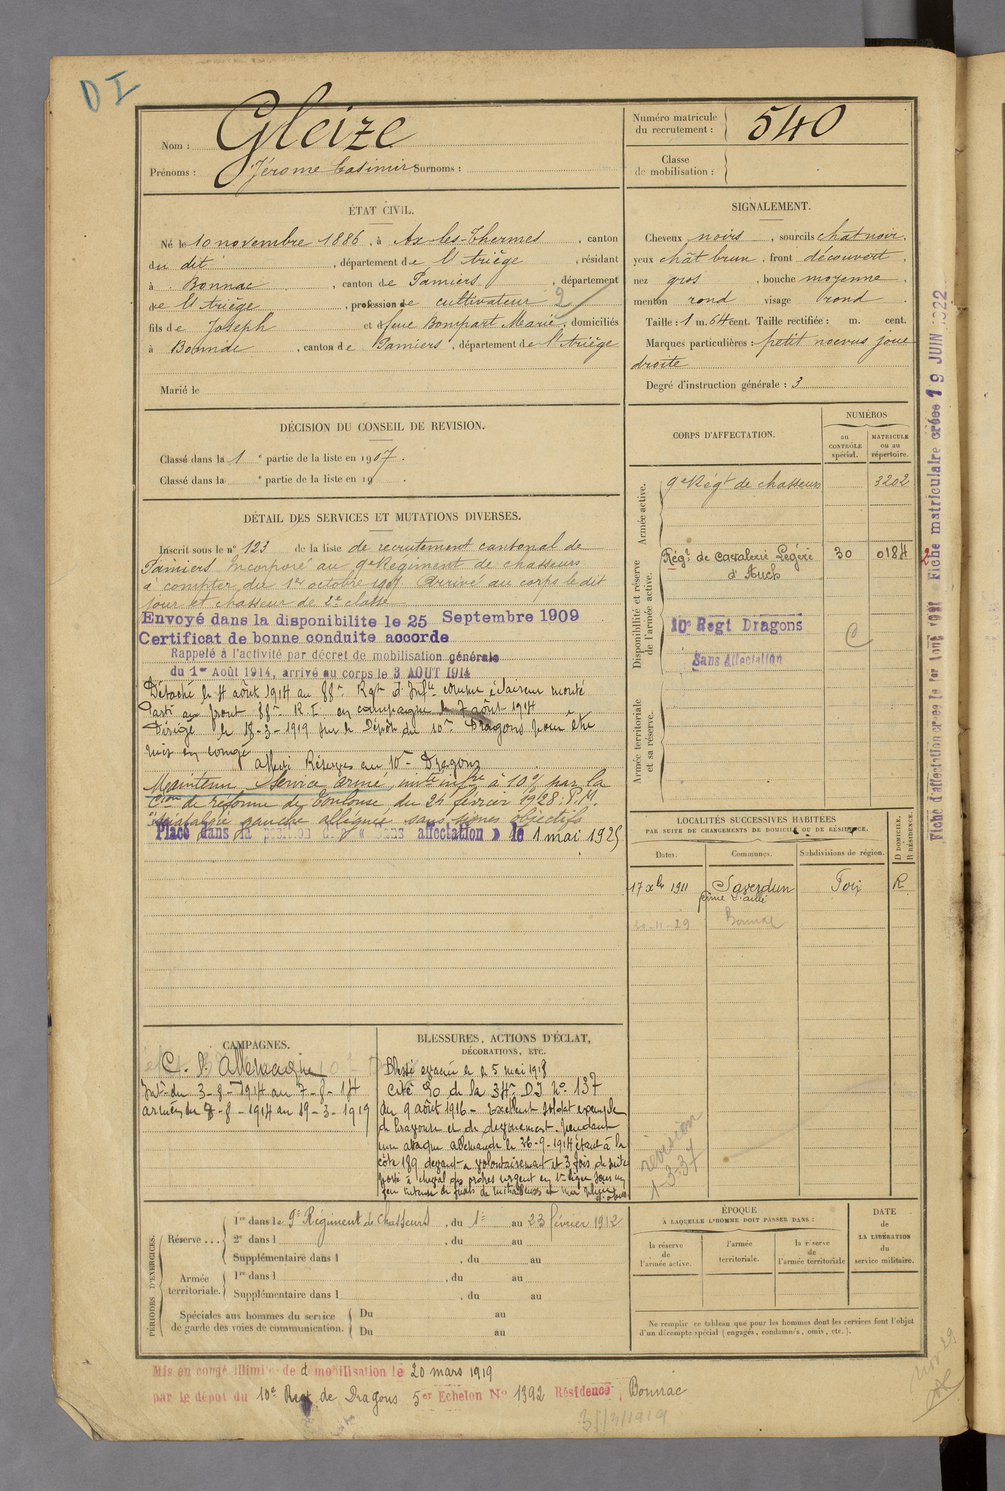 D I
Nom : Gleize
Prénoms : Jérome Casimir Surnoms :
Numéro matricule du recrutement : 540
Classe de mobilisation :
ÉTAT CIVIL.
Né le 10 novembre 1886, à Ax-les-Thermes, canton
du dit, département de l'Ariège, résidant
à Bonnac, canton de Pamiers, département
de l'Ariège, profession de cultivateur 2
fils de Joseph et d feue Bompart Marie, domiciliés
à Bonnac, canton de Pamiers, département de l'Ariège
Marié le
SIGNALEMENT.
Cheveux noirs, sourcils chat noir,
yeux chat brun, front découvert,
nez gros, bouche moyenne,
menton rond visage rond.
Taille : 1 m. 64 cent. Taille rectifiée : m. cent.
Marques particulières : petit noevus joue
droite
Degré d'instruction générale : 3
DÉCISION DU CONSEIL DE REVISION.
Classé dans la 1e partie de la liste en 1907.
Classé dans la e partie de la liste en 19 .
DÉTAIL DES SERVICES ET MUTATIONS DIVERSES.
Inscrit sous le n° 123 de la liste de recrutement cantonal de
Pamiers Incorporé au 9e Régiment de chasseurs
à compter du 1er octobre 1907 Arrivé au corps le dit
jour et chasseur de 2e classe
Envoyé dans la disponibilite le 25 Septembre 1909
Certificat de bonne conduite accorde
Rappelé à l'activité par décret de mobilisation générale
du 1er Août 1914, arrivé au corps le 3 AOUT 1914
Détaché le 4 août 1914 au 88e Rgt d'Infie comme éclaireur monté
Parti au front 88e R I en campagne le 7 août 1914
Dirigé le 18-3-1919 sur le Dépôt du 10e Dragons pour être
mis en congé
Affecté Réserves au 10e Dragons
Maintenu Service armé, invalidité infre à 10% par la
Cion de réforme de Toulouse du 24 février 1928. P.M.
gauche alléguée sans signes objectifs
Placé dans la position dite « Sans affectation » le 1 mai 1925
CORPS D'AFFECTATION.
NUMÉROS
au CONTRÔLE spécial.
MATRICULE ou au répertoire.
Armée active.
9e Régt de chasseurs 3202
Disponibilité et réserve de l'armée active.
Régt de Cavalerie Légère 30 0184
d'Auch
10e Regt Dragons
Sans Affectation
C
Armée territoriale et sa réserve.
LOCALITÉS SUCCESSIVES HABITÉES
PAR SUITE DE CHANGEMENTS DE DOMICILE OU DE RÉSIDENCE.
D DOMICILE. R RÉSIDENCE.
Dates. Communes. Subdivisions de région.
17 xbre 1911 Saverdun Foix R
ferme
29 Bonnac
CAMPAGNES.
C. d. Allemagne
Intr du 3-8-1914 au 7-8-14
armées du 8-8-1914 au 19-3-1919
BLESSURES, ACTIONS D'ÉCLAT,
DÉCORATIONS, ETC.
Blessé évacué le 5 mai 1918
Cité à l'O de la 34e D.I. N° 137
du 9 août 1916 - Excellent soldat exemple
de bravoure et de dévouement. Pendant
une attaque allemande le 26-9-1914 étant à la
côte 189 devant a volontairement et 3 fois de suite
porté à cheval des ordres urgent en 1e ligne sous un
feu intense de fusils de mitrailleuses et une pluie d'obus
révision
1-3-37
PÉRIODES D'EXERCICES.
Réserve... 1re dans le 9e Régiment de Chasseurs, du 1er au 23 février 1912
2e dans l , du au
Supplémentaire dans l du au
Armée territoriale. 1re dans l , du au
Supplémentaire dans l , du au
Spéciales aux hommes du service de garde des voies de communication. Du au
Du au
ÉPOQUE
À LAQUELLE L'HOMME DOIT PASSER DANS :
la réserve de l'armée active.
l'armée territoriale.
la réserve de l'armée territoriale
DATE de LA LIBÉRATION du service militaire.
Ne remplir ce tableau que pour les hommes dont les services font l'objet
d'un décompte spécial (engagés, condamnés, omis, etc.).
Mis en congé illimité de démobilisation le 20 mars 1919
par le dépôt du 10e Regt de Dragons 5er Echelon N° 1392 Résidence, Bonnac
Fiche matriculaire créée 19 JUIN 1922
Fiche d'affectation créée le 1er Août